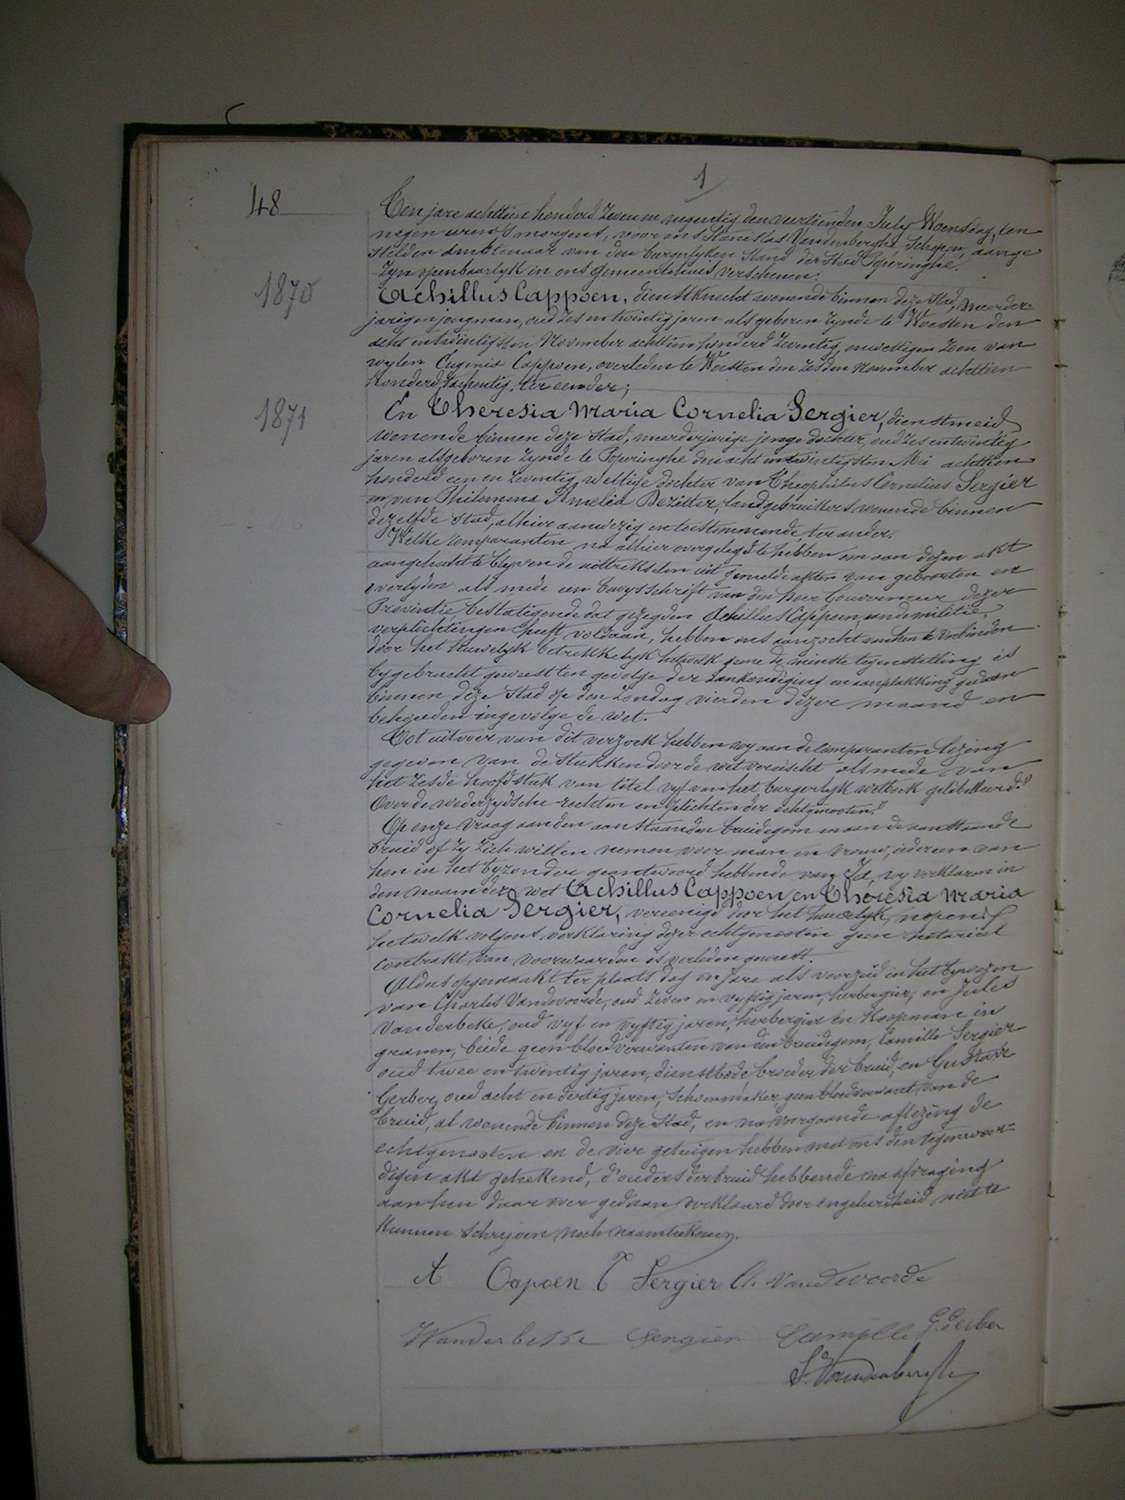 1
48
Ten jare achttien honderd zeven en negentig den veertienden July Woensdag, ten
negen uren 's morgens, voor ons Stanislas Vandenberghe Schepen, aange
stelden Ambtenaar van den burgerlyken stand der Stad Poperinghe,
zyn openbaarlyk in ons gemeentehuis verschenen:
1870
Achillus Cappoen, dienstknecht wonende binnen deze Stad, meerder-
jarigen jongman, oud zes en twintig jaren als geboren zynde te Woesten den
acht en twintigsten November achttien honderd zeventig, onwettigen zoon van
wylen Eugenia Cappoen, overleden te Woesten den zesden November achttien
honderd tachentig, ter eender;
1871
En Theresia Maria Cornelia Sergier, dienstmeid
wonende binnen deze Stad, meerderjarige jonge dochter, oud zes en twintig
jaren als geboren zynde te Poperinghe den acht en twintigsten Mei achttien
honderd een en zeventig, wettige dochter van Theophilus Cornelius Sergier
en van Philomena Amelia Dezitter, landgebruikers wonende binnen
dezelfde Stad, alhier aanwezig en toestemmende ter ander.
Welke comparanten na alhier overgelegd te hebben om aan dezen akt
aangehecht te blyven de uittreksels uit gemelde akten van geboorten en
overlyden als mede een bewysschrift van den heer Gouverneur dezer
Provintie bestatigende dat gezegden Achillus Cappoen aan de militie
verplichtingen heeft voldaan, hebben ons aanzocht van hen te verbinden
door het Huwelyk betrekkelyk hetwelk geene de minste tegenstelling is
bygebracht geweest ten gevolge der aankondiging en aanplakking gedaan
binnen deze Stad op den Zondag vierden dezer maand en
behouden ingevolge de wet.
Tot uitvoer van dit verzoek hebben wy aan de comparanten lezing
gegeven van de stukken door de wet vereischt alsmede van
het zesde hoofdstuk van titel vyf van het burgerlyk wetboek gelibelleerd:"
Over de wederzydsche rechten en plichten der echtgenooten."
Op onze vraag aan den aanstaanden bruidegom en aen de aanstaande
bruid of zy zich willen nemen voor man en vrouw, iedereen van
hen in het byzonder geantwoord hebbende van Ja, wy verklaren in
den naam der wet Achillus Cappoen en Theresia Maria
Cornelia Sergier, vereenigd door het huwelyk, nopens
hetwelk volgens verklaring dezer echtgenooten geen notarieel
contrakt van voorwaarden is verleden geweest.
Aldus opgemaakt ter plaats dag en jare als voorzeid in het bywezen
van Charles Vandwoorde, oud zeven en vyftig jaren, herbergier, en Jules
Vanderbeke, oud vyf en vyftig jaren, herbergier en Koopman in
granen, beide geen bloedverwanten van den bruidegom, Camille Sergier
oud twee en twintig jaren, dienstbode broeder der bruid, en Gustave
Gerber, oud acht en dertig jaren, Schoenmaker, geen bloedverwant van de
bruid, al wonende binnen deze Stad, en na voorgaande aflezing de
echtgenooten en de vier getuigen hebben met ons den tegenwoor-
digen akt geteekend, d'ouders der bruid hebbende na afvraging
aan hen daar over gedaan verklaard door ongeleerdheid niet te
kunnen schryven noch naamteekenen.
A Capoen T Sergier Ch Vandewoorde
Sergier Camille G. Gerber
S. Vandenberghe